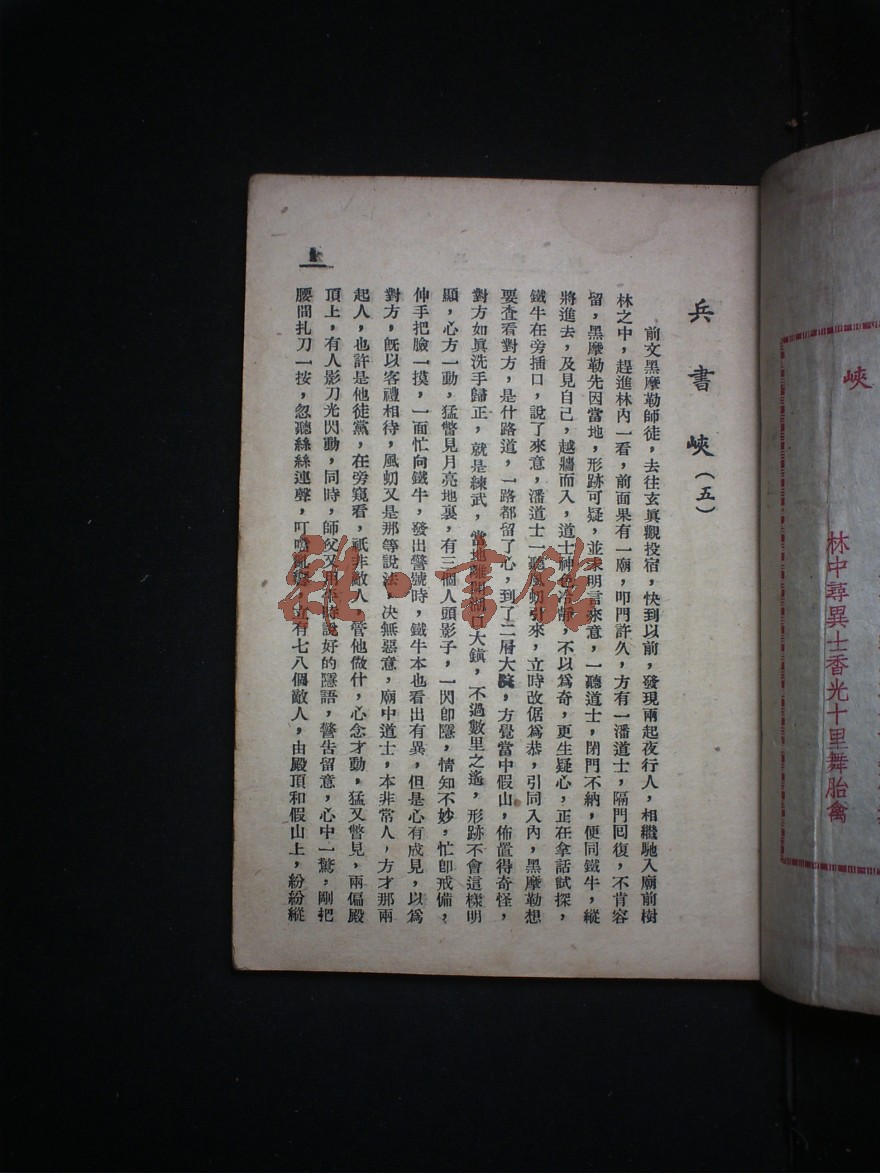 峽
林中尋異士香光十里舞胎禽
兵書峽（五）
前文黑摩勒師徒，去往玄眞觀投宿，快到以前，發現兩起夜行人，相繼馳入廟前樹
林之中，趕進林內一看，前面果有一廟，叩門許久，方有一潘道士，隔門回復，不肯容
留，黑摩勒先因當地，形跡可疑，並未明言來意，一聽道士，閉門不納，便同鐵牛，縱
將進去，及見自己，越牆而入，道士神色冷靜，不以爲奇，更生疑心，正在拿話試探，
鐵牛在旁插口，說了來意，潘道士一聽風虭引來，立時改倨爲恭，引同入內，黑摩勒想
要查看對方，是什路道，一路都留了心，到了二層大院，方覺當中假山，佈置得奇怪，
對方如眞洗手歸正，就是練武，當地離開湖口大鎭，不過數里之遙，形跡不會這樣明
顯，心方一動，猛瞥見月亮地裏，有三個人頭影子，一閃卽隱，情知不妙，忙卽戒備，
伸手把臉一摸，一面忙向鐵牛，發出警號時，鐵牛本也看出有異，但是心有成見，以爲
對方，旣以客禮相待，風虭又是那等說法，決無惡意，廟中道士，本非常人，方才那兩
起人，也許是他徒黨，在旁窺看，祇非敵人，管他做什，心念才動，猛又瞥見，兩偏殿
頂上，有人影刀光閃動，同時，師父又用 說好的隱語，警告留意，心中一驚，剛把
腰間扎刀一按，忽聽絲絲連聲，叮噹亂響，立有七八個敵人，由殿頂和假山上，紛紛縱